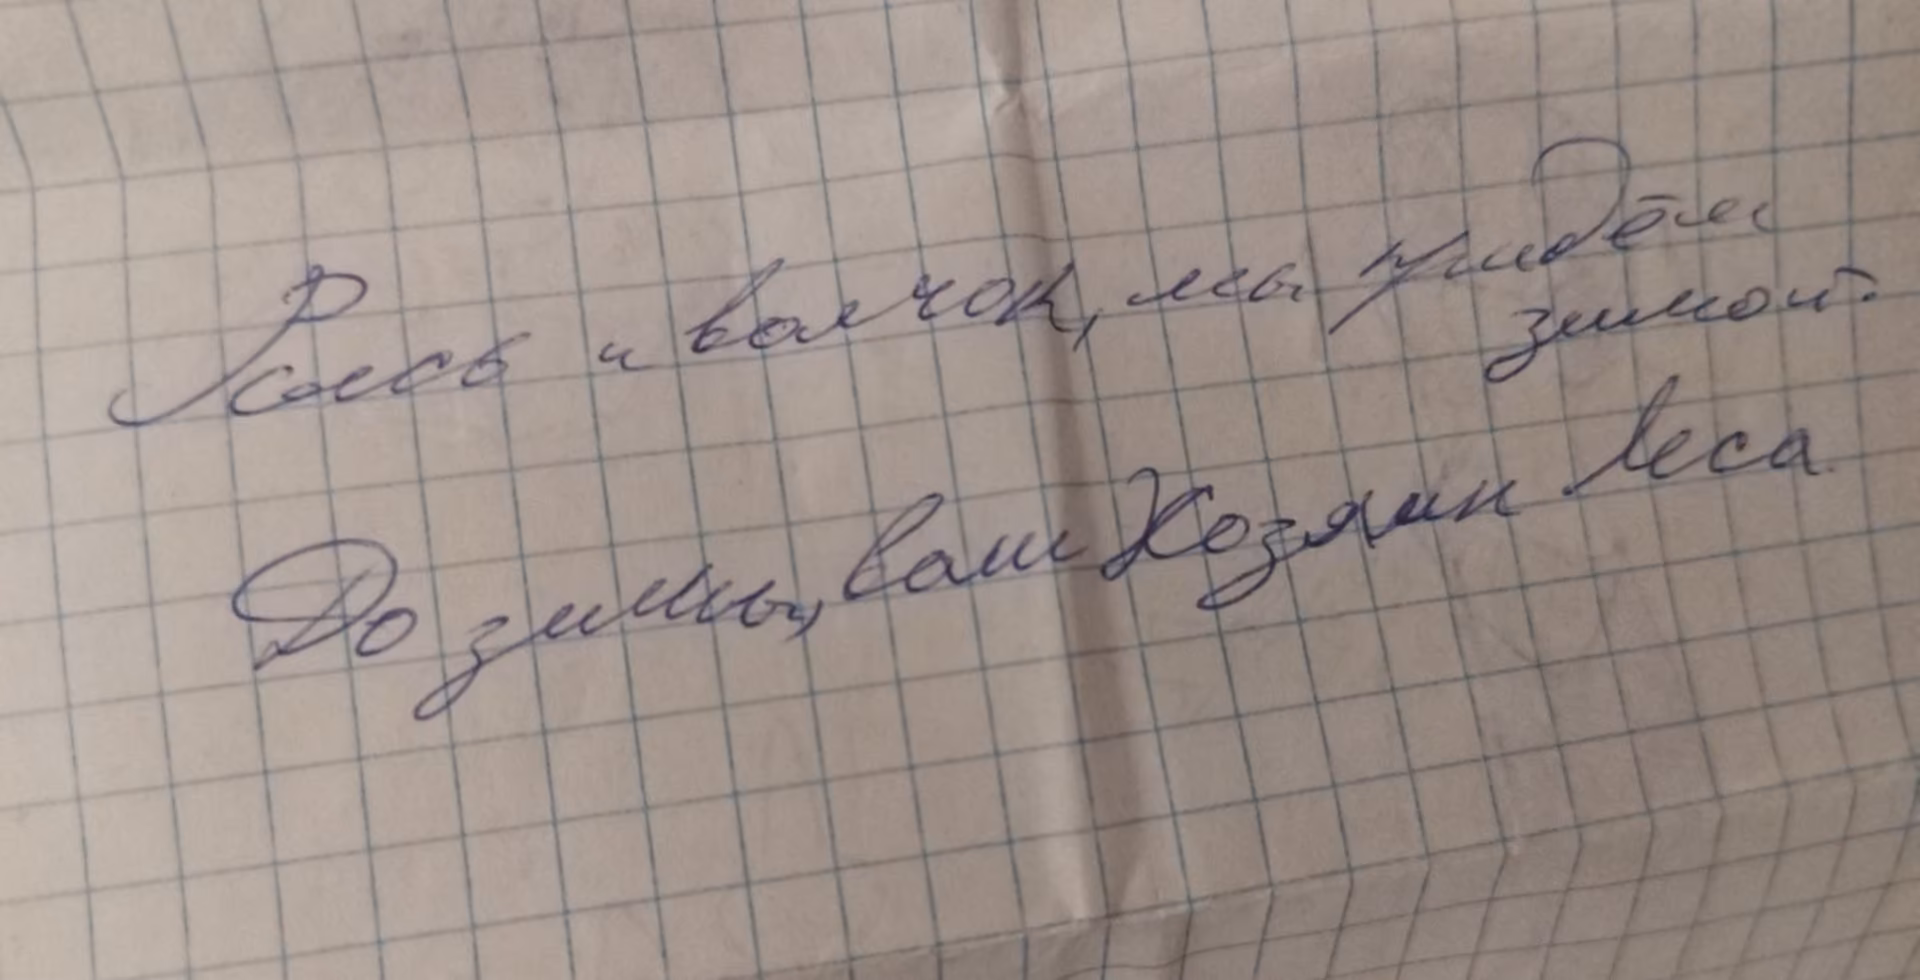 Рысь и волчок, мы придём
зимой.
До зимы, ваш Хозяин леса